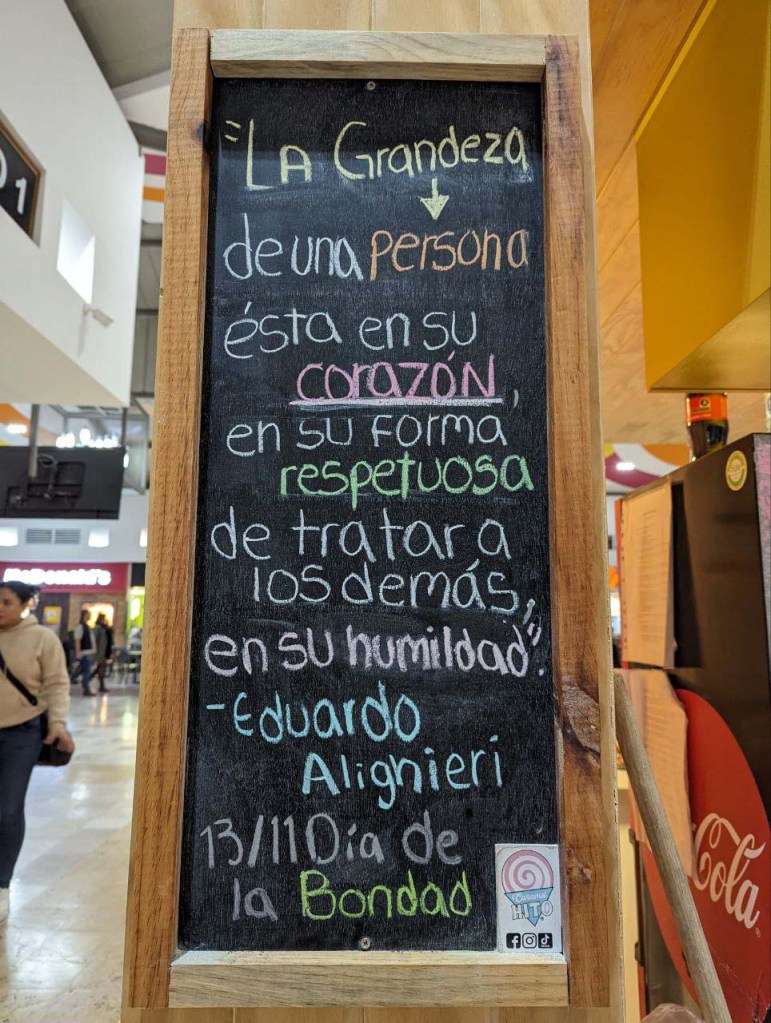 "LA Grandeza
de una persona
ésta en su
corazón,
en su forma
respetuosa
de tratar a
los demás,
en su humildad".
-Eduardo
Alignieri
13/11 Día de
la Bondad
Caramel
HITO
01
McDonald's
Coca-Cola